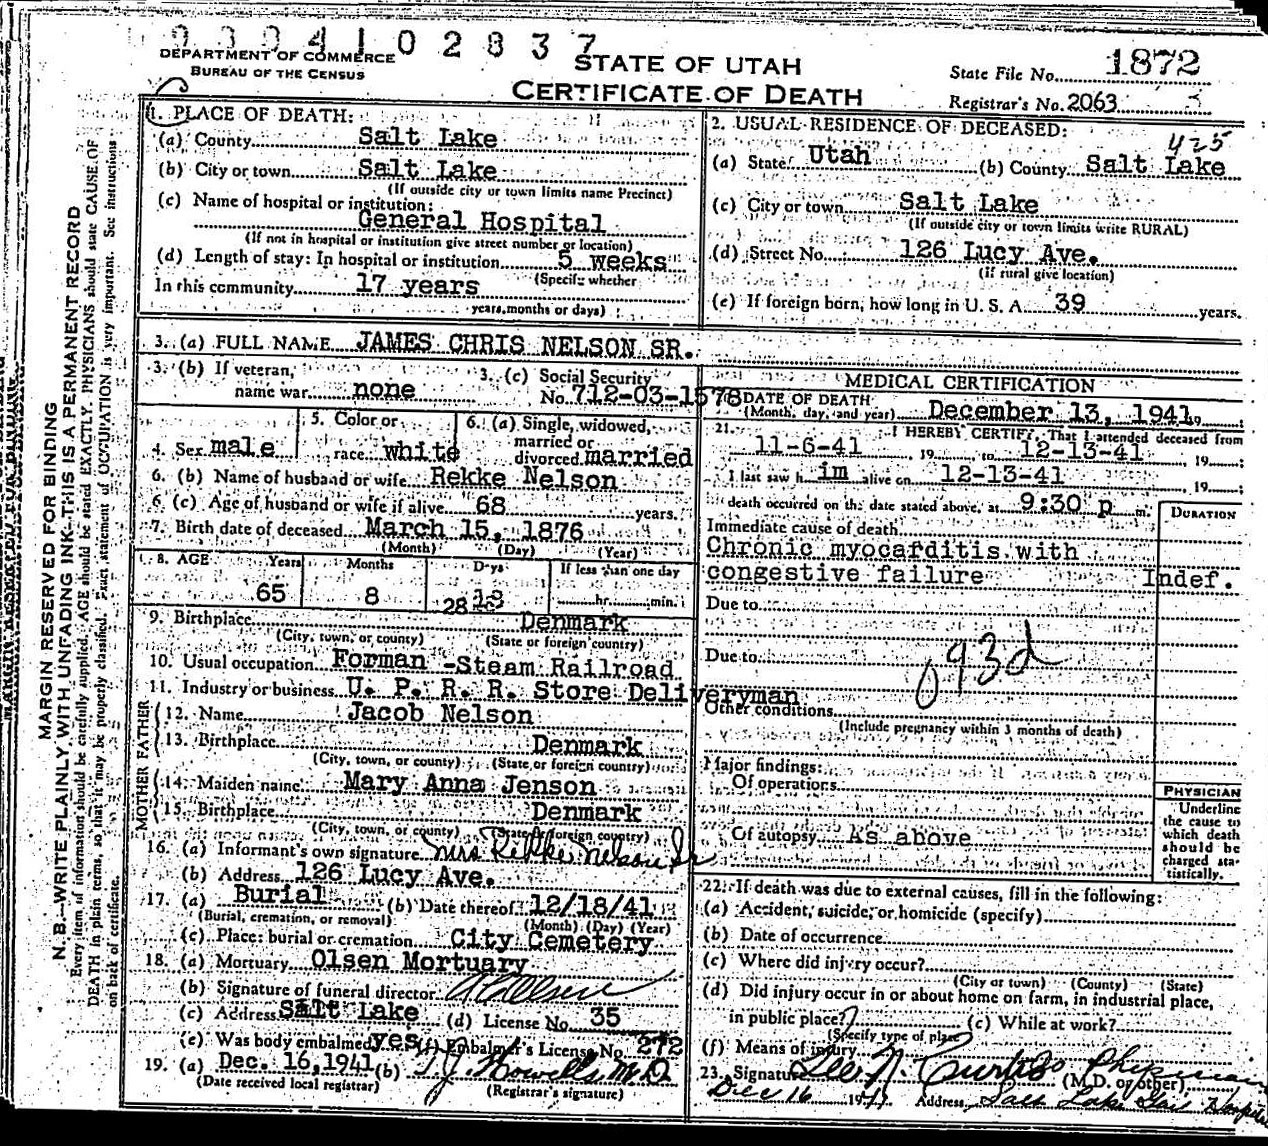 9 3 0 4 1 0 2 8 3 7
DEPARTMENT OF COMMERCE
BUREAU OF THE CENSUS
STATE OF UTAH
CERTIFICATE OF DEATH
State File No. 1872
Registrar's No. 2063
MARGIN RESERVED FOR BINDING
N. B.—WRITE PLAINLY WITH UNFADING INK—THIS IS A PERMANENT RECORD
Every item of information should be carefully supplied. AGE should be stated EXACTLY. PHYSICIANS should state CAUSE OF
DEATH in plain terms, so that it may be properly classified. Exact statement of OCCUPATION is very important. See instructions
on back of certificate.
1. PLACE OF DEATH:
(a) County Salt Lake
(b) City or town Salt Lake
(If outside city or town limits name Precinct)
(c) Name of hospital or institution:
General Hospital
(If not in hospital or institution give street number or location)
(d) Length of stay: In hospital or institution 5 weeks
(Specify whether
In this community 17 years
years, months or days)
2. USUAL RESIDENCE OF DECEASED:
425
(a) State Utah (b) County Salt Lake
(c) City or town Salt Lake
(If outside city or town limits write RURAL)
(d) Street No. 126 Lucy Ave.
(if rural give location)
(e) If foreign born, how long in U. S. A. 39 years.
3. (a) FULL NAME JAMES CHRIS NELSON SR.
3. (b) If veteran, name war none
3. (c) Social Security No. 712-03-1578
4. Sex male
5. Color or race white
6. (a) Single, widowed, married or divorced married
6. (b) Name of husband or wife Rekke Nelson
6. (c) Age of husband or wife if alive 68 years.
7. Birth date of deceased March 15, 1876
(Month) (Day) (Year)
8. AGE Years Months Days If less than one day
65 8 28 hr. min.
9. Birthplace Denmark
(City, town, or county) (State or foreign country)
10. Usual occupation Forman -Steam Railroad
11. Industry or business U. P. R. R. Store Deliveryman
FATHER
12. Name Jacob Nelson
13. Birthplace Denmark
(City, town, or county) (State or foreign country)
MOTHER
14. Maiden name Mary Anna Jenson
15. Birthplace Denmark
(City, town, or county) (State or foreign country)
16. (a) Informant's own signature Mrs Rekke Nelson Sr
(b) Address 126 Lucy Ave.
17. (a) Burial (b) Date thereof 12/18/41
(Burial, cremation, or removal) (Month) (Day) (Year)
(c) Place: burial or cremation City Cemetery
18. (a) Mortuary Olsen Mortuary
(b) Signature of funeral director
(c) Address Salt Lake (d) License No. 35
(e) Was body embalmed yes (f) Embalmer's License No. 272
19. (a) Dec. 16, 1941 (b) T.J. Howells M.D.
(Date received local registrar) (Registrar's signature)
MEDICAL CERTIFICATION
DATE OF DEATH
(Month, day, and year) December 13, 1941
21. I HEREBY CERTIFY, That I attended deceased from
11-6-41, 19 to 12-13-41, 19 ;
I last saw h im alive on 12-13-41, 19 ;
death occurred on the date stated above, at 9:30 p m.
DURATION
Immediate cause of death
Chronic myocarditis with
congestive failure Indef.
Due to
Due to
093d
Other conditions
(Include pregnancy within 3 months of death)
Major findings:
Of operations
Of autopsy As above
PHYSICIAN
Underline
the cause to
which death
should be
charged sta-
tistically.
22. If death was due to external causes, fill in the following:
(a) Accident, suicide, or homicide (specify)
(b) Date of occurrence
(c) Where did injury occur?
(City or town) (County) (State)
(d) Did injury occur in or about home on farm, in industrial place,
in public place?
(Specify type of place)
(e) While at work?
(f) Means of injury
23. Signature Lee N. Curtis Physician
(M.D. or other)
Dec 16 1941 Address Salt Lake